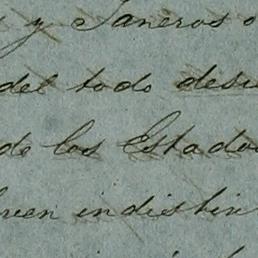 y Janeros o
del todo desi
de los Estado
indistin